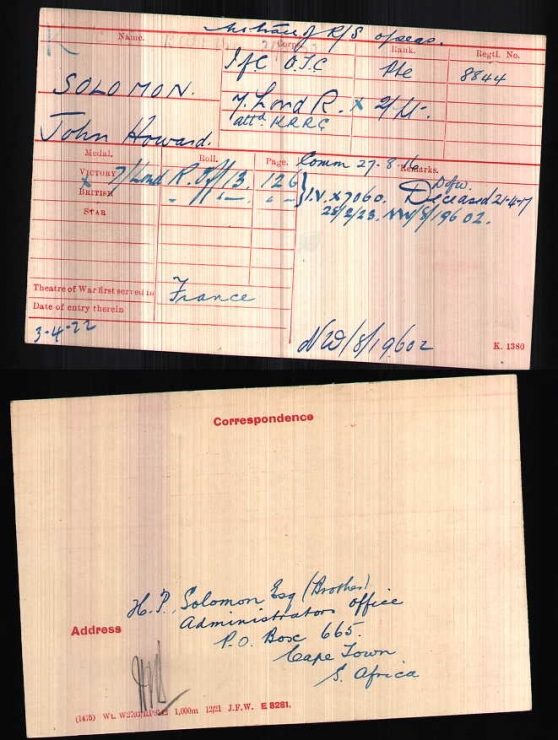 Action of R/S opseas.
Name. Corps. Rank. Regtl. No.
I of C O.T.C Pte 8844
SOLOMON.
7. Lond R. x 2/Lt.
attd K.R.R.C
John Howard.
Medal. Roll. Page. Remarks.
Comm 27-8-16
VICTORY x 7/Lond R. Off/13. 126
BRITISH - " - " -
Dofw.
Deceased 21-4-17
I.V. x 7060.
28/2/23. NW/8/19602.
STAR
Theatre of War first served in France
Date of entry therein
3-4-22
NW/8/19602
K. 1380
Correspondence
H. P. Solomon Esq (Brother)
Administrators Office
Address
P.O. Box 665.
Cape Town
S. Africa
(1475) Wt. 1,000m 12/21 J.F.W. E 8281.